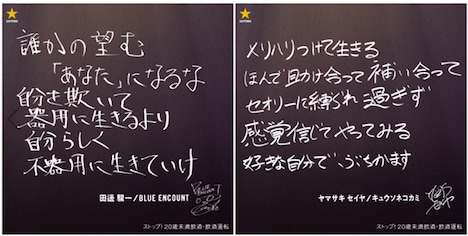 SAPPORO
誰かの望む
「あなた」になるな
自分を欺いて
器用に生きるより
自分らしく
不器用に生きていけ
田邊 駿一/BLUE ENCOUNT
ストップ!20歳未満飲酒・飲酒運転
SAPPORO
メリハリつけて生きる
ほんで助け合って補い合って
セオリーに縛られ過ぎず
感覚信じてやってみる
好きな自分でぶちかます
ヤマサキ セイヤ/キュウソネコカミ
ストップ!20歳未満飲酒・飲酒運転